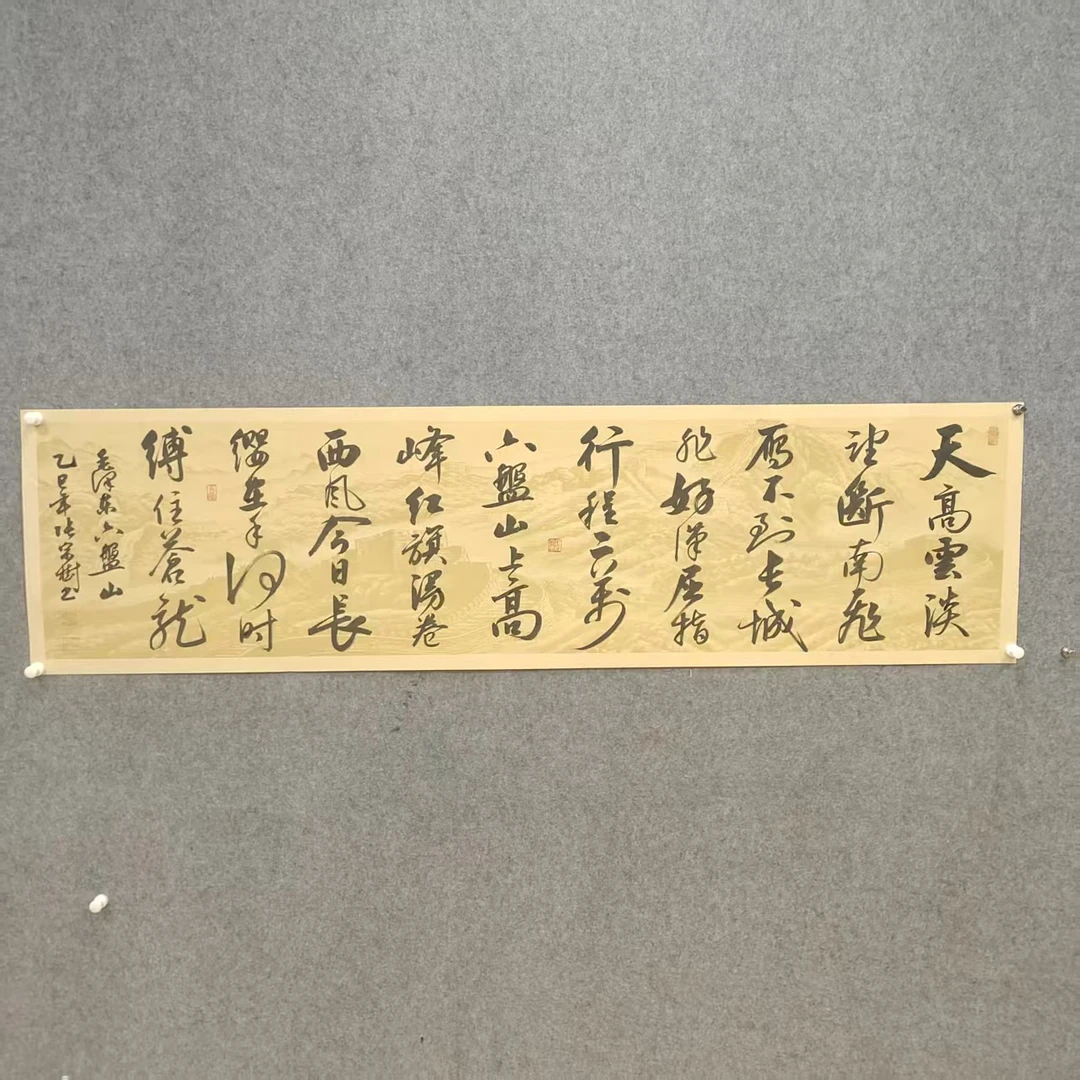 天高雲淡
望斷南飛
雁不到长城
非好漢屈指
行程二万
六盤山上高
峰红旗漫卷
西风今日長
缨在手何时
缚住蒼龍
毛澤東六盤山
乙巳年张樹书